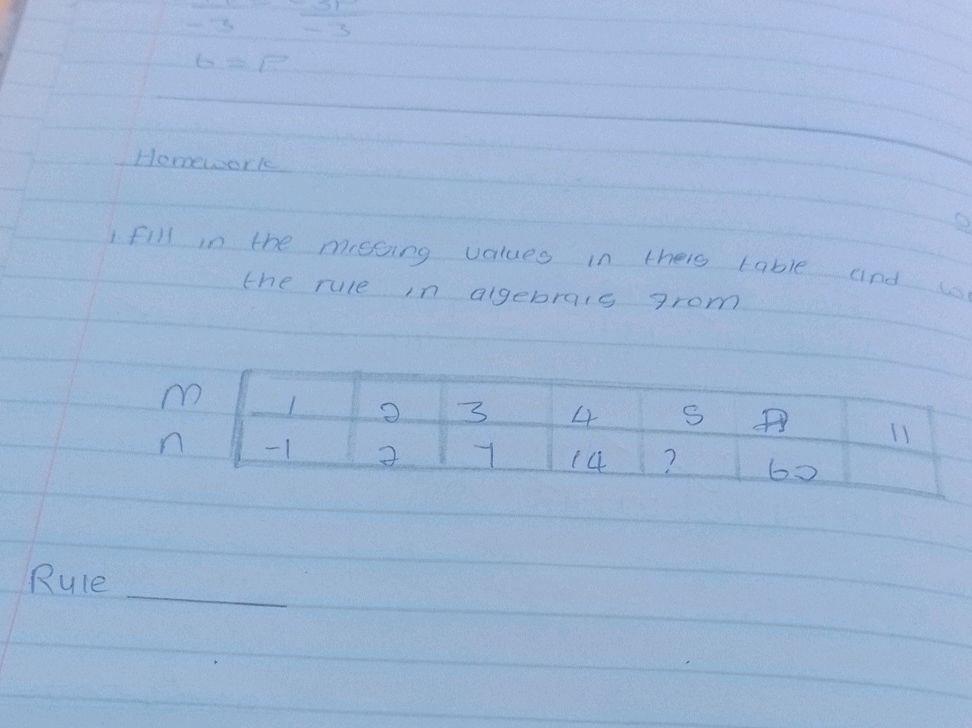 -3 -3
6 = P
Homework
1 fill in the missing values in theis table and
the rule in algebrais from
m 1 2 3 4 5 11
n -1 2 7 14 ? 62
Rule